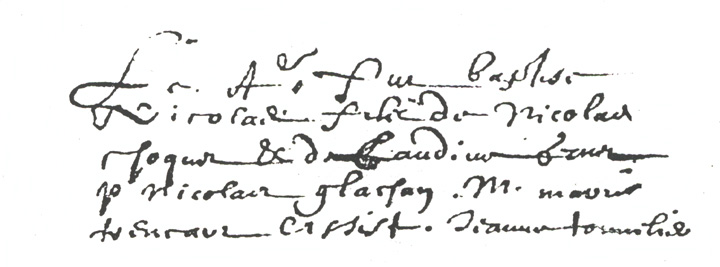 Le 4e fut baptise
Nicolas filz de Nicolas
choquer & de Claudine
p Nicolas glassan . M. mavri
assist . Jeanne tonnelie